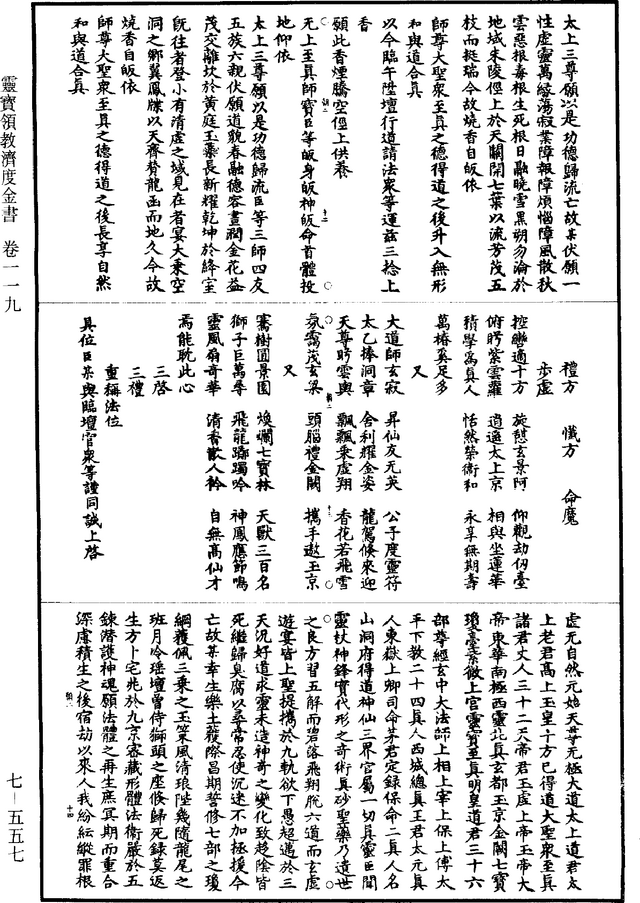 太上三尊願以是功德歸流亡故某伏願一
性虛靈萬緣蕩寂業障報障煩惱障風散秋
雲惡根毒根生死根日融曉雪黑朔勿淪於
地域朱陵徑上於天關開七葉以流芳茂五
枝而挺瑞今故燒香自皈依
師尊大聖衆至真之德得道之後升入無形
和與道合真
以今臨午陞壇行道請法衆等運茲三捻上
香
願此香煙騰空徑上供養
无上至真師寶臣等皈身皈神皈命首體投
地仰依
太上三尊願以是功德歸流臣等三師四友
五族六親伏願道貌春融德容晝潤金花益
茂交離坎於黃庭玉藥長新耀乾坤於絳室
既往者登小有清虛之域見在者宴大乘空
洞之鄉冀鳳牒以天齊賛龍函而地久今故
燒香自皈依
師尊大聖衆至真之德得道之後長享自然
和與道合真
靈寶領教濟度金書 卷一一九
禮方 懺方 命魔
步虛
控轡適十方 旋憩玄景阿 仰觀劫仞臺
俯眄紫雲羅 逍遙太上京 相與坐蓮華
積學爲真人 恬然榮衛和 永享無期壽
萬椿奚足多
又
大道師玄寂 昇仙友无英 公子度靈符
太乙捧洞章 舍利耀金姿 龍駕倏來迎
天尊眄雲輿 飄飄乘虛翔 香花若飛雪
氛靄茂玄梁 頭腦禮金闕 攜手遨玉京
又
騫樹圓景園 煥爛七寶林 天獸三百名
獅子巨萬尋 飛龍躑躅吟 神鳳應節鳴
靈風扇奇華 清香散人衿 自無高仙才
焉能耽此心
三啓
三禮
重稱法位
具位臣某與臨壇官衆等謹同誠上啓
虛无自然元始天尊无極大道太上道君太
上老君高上玉皇十方已得道大聖衆至真
諸君丈人三十二天帝君玉虛上帝玉帝大
帝東華南極西靈北真玄都玉京金闕七寶
瓊臺紫微上宮靈寶至真明皇道君三十六
部尊經玄中大法師上相上宰上保上傅太
平下教二十四真人西城總真王君太元真
人東嶽上卿司命茅君定錄保命二真人名
山洞府得道神仙三界官屬一切真靈臣聞
靈杖神鋒寶代形之奇術真砂聖藥乃遺世
之良方習五解而碧落飛翔脫六道而玄虛
遊宴皆上聖提攜於九軌欲下愚超邁於三
天況好道求靈未造神奇之變化致趍陰皆
死繼歸臭腐以尋常忍使沉迷不加極援今
亡故某幸生樂土獲際昌期誓修七部之瓊
綱獲佩三乘之玉笈風清琅陛幾隨龍尾之
班月冷瑶壇曾侍獅頭之座倏歸死錄莫返
生方卜宅兆於九京審藏形體法衛嚴於五
鍊潛護神魂願法體之再生庶冥期而重合
深慮積生之後宿劫以來人我紛紜縱罪根
七-五五七